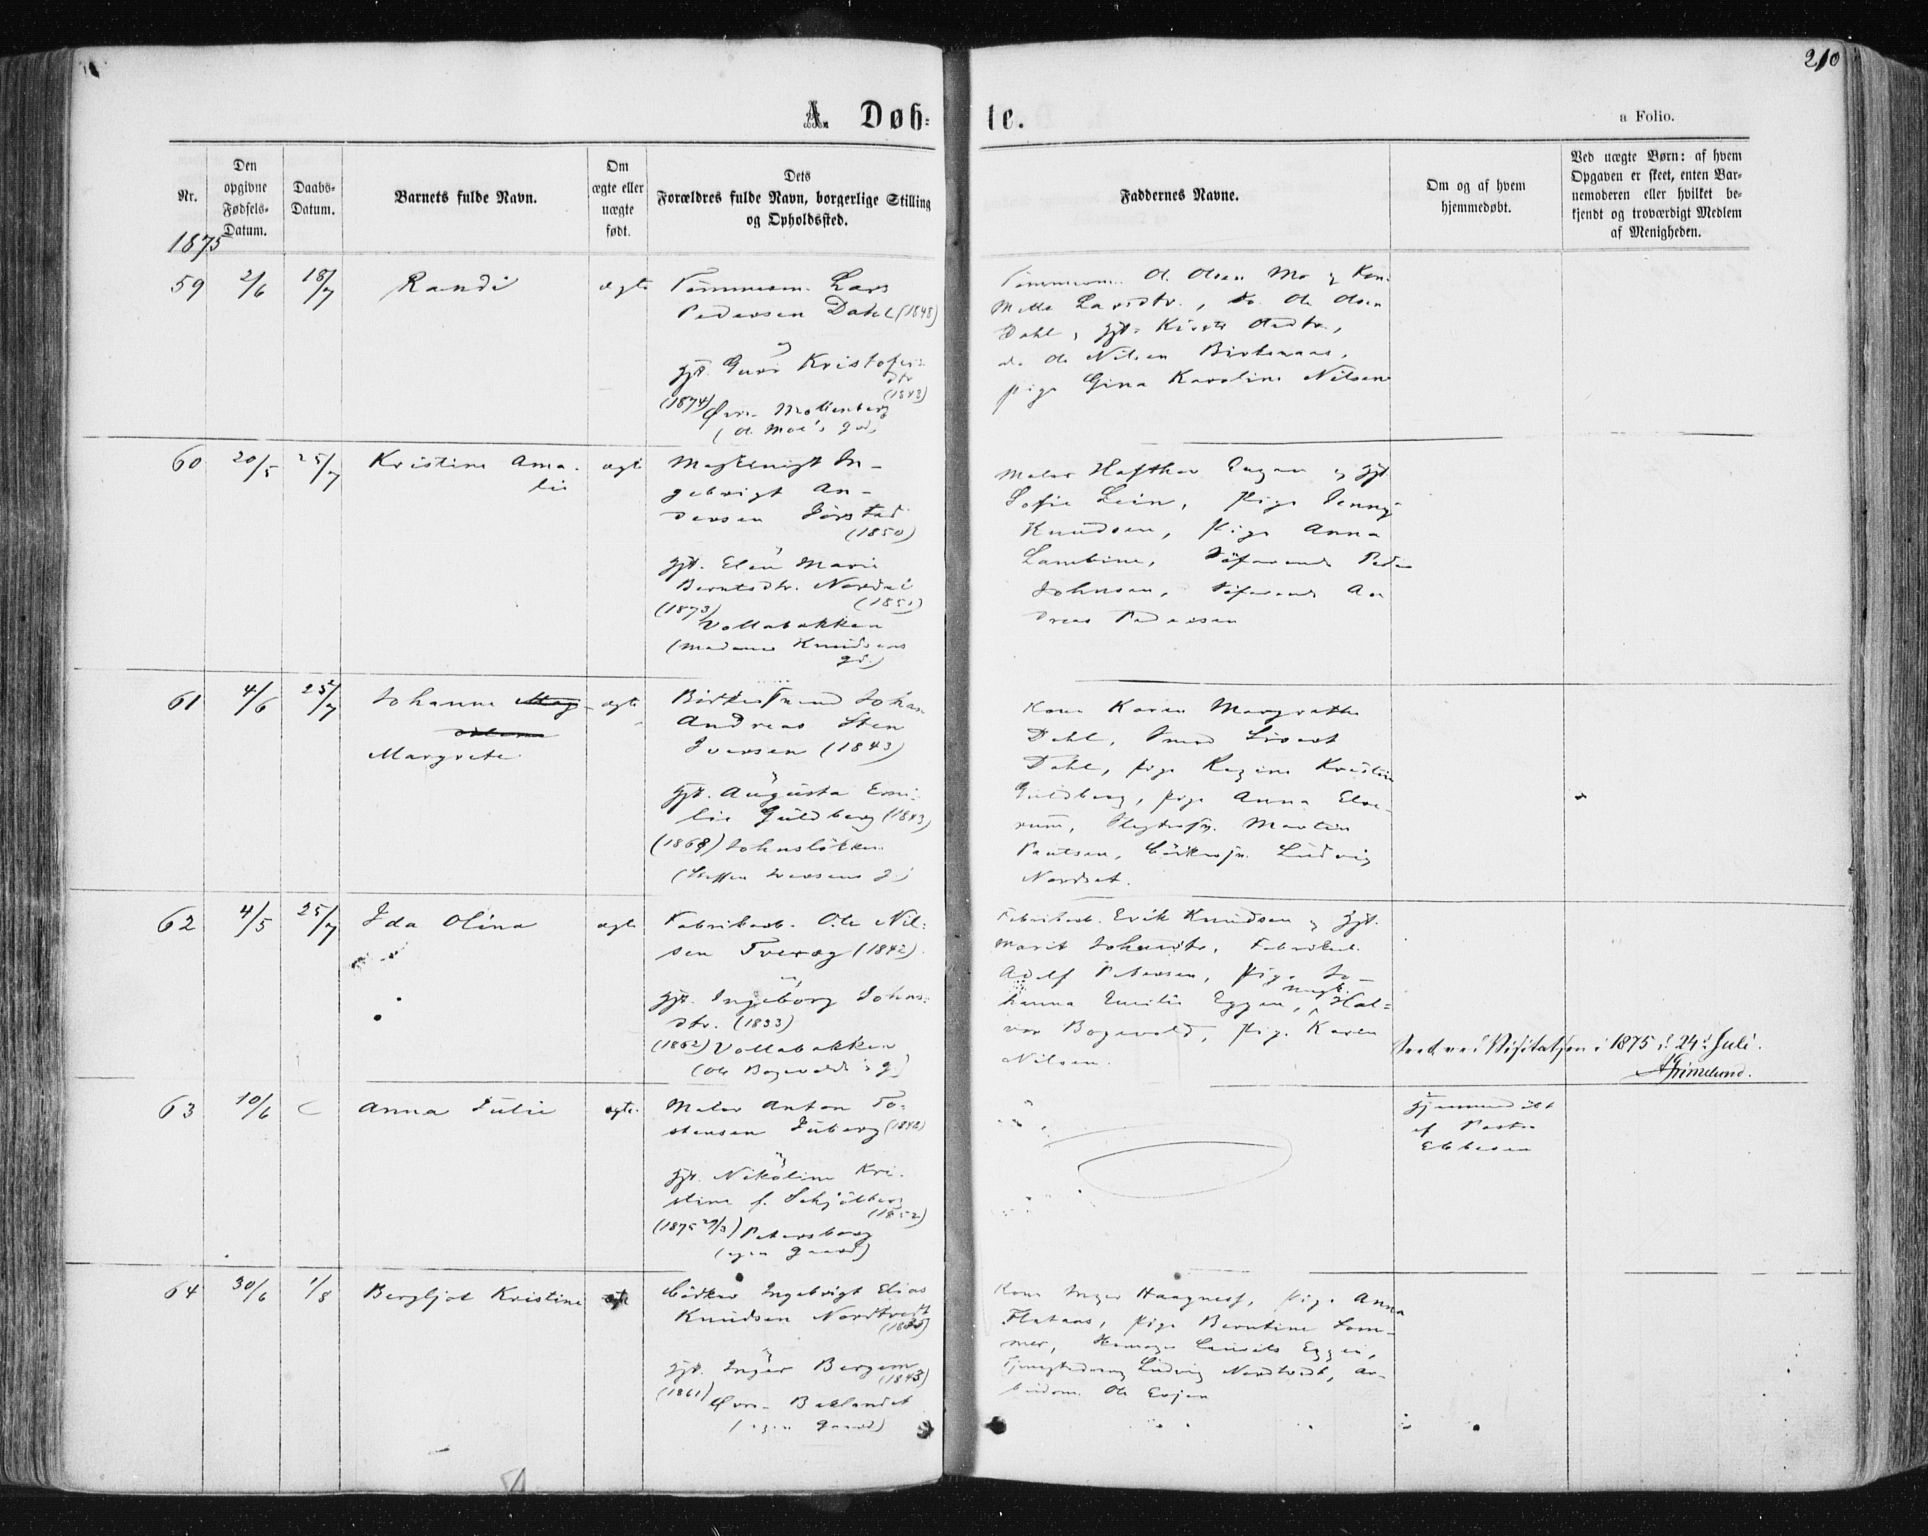 210
A. Døb-
te.
a Folio.
Nr.
Den
opgivne
Fødsels-
Datum.
Daabs-
Datum.
Barnets fulde Navn.
Om
ægte eller
uægte
født.
Dets
Forældres fulde Navn, borgerlige Stilling
og Opholdssted.
Faddernes Navne.
Om og af hvem
hjemmedøbt.
Ved uægte Børn: af hvem
Opgaven er skeet, enten Bar-
nemoderen eller hvilket be-
kjendt og troværdigt Medlem
af Menigheden.
1875
59 2/6 18/7 Randi ægte
Tømmerm. Lars
Pedersen Dahl (1848)
og
gjt. Guri Kristofers-
dtr (1843)
(1874) Øvre Møllenberg
(O. Moe's gd)
Ol. Olsen Mo og Kon
Mette Larsdtr., Ole Olsen
Dahl, gjt. Olsdtr.,
Ole Nilsen
pige Gina Karoline Nilsen
60 20/5 25/7 Kristine Ama-
lie ægte
In-
gebrigt An-
dersen Jørstad
(1850)
gjt. Elen Marie
Berntsdtr. Nordal
(1873) (1851)
Vollabakken
(Madame Knudsens
gd.)
Maler Eugen og gjt
Sofie Lein, Pige Jenny
Knudsen, Pige Anna
Lambine, Søfarende Peder
Johnsen, Søfarende An
dreas Pedersen
61 4/6 25/7 Johanna Mag-
dalena
Margrete ægte
Johan
Andreas Sten
Iversen (1843)
og
gjt. Augusta Emi-
lie Guldberg (1843)
(1868) Johnsløkken
(Steffen Iversens g.)
Kone Karen Margrethe
Dahl, Smed Sivert
Dahl, pige Regine Kristine
Guldberg, pige Anna Elve-
rum, Martin
Paulsen, Ludvig
Nordset.
62 4/5 25/7 Ida Olina ægte
Fabrikarb. Ole Nil-
sen Tveræg (1842)
og
gjt. Ingeborg Johns-
dtr. (1833)
(1862) Vollabakken
(Ole Bogevolds g)
Fabrikarb. Erik Knudsen og gjt.
Marit Johnsdtr., Fabrikarb.
Adolf Petersen, pige Jo-
hanna Emilie Eggen, Hal-
vor Bogevold, pige Karen
Nilsen.
Visitatsen i 1875 d. 24d Juli.
Grimelund.
63 10/6 Anna Julie ægte
Maler Anton To-
stensen Juberg (1848)
og
gjt. Nikoline Kri-
stine f. Schjølberg
(1852)
(1875 29/3) Petersborg
(egen gaard)
Hjemmedøbt
af Pastor
Ebbesen
64 30/6 1/8 Bergljot Kristine ægte
Bødker Ingebrigt Elias
Knudsen Nordtvedt
(1835)
og
gjt. Inger Bergem
(1843)
(1861) Øvre Baklandet
(egen gaard)
Kone Inger Haagness, Pige Anna
Flataas, Pige Berntine Som-
mer, Eggen,
Ludvig Nordtvedt, Ar-
beidsm. Ole Evjen